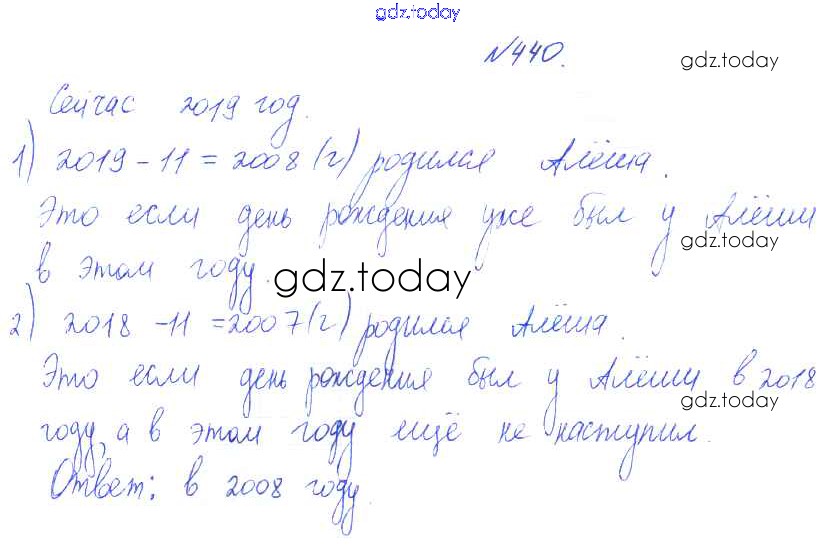 gdz.today
№440.
gdz.today
Сейчас 2019 год.
1) 2019 - 11 = 2008 (г) родился Алёша.
Это если день рождения уже был у Алёши
gdz.today
в этом году.
gdz.today
2) 2018 - 11 = 2007 (г) родился Алёша.
Это если день рождения был у Алёши в 2018
gdz.today
году, а в этом году ещё не наступил.
Ответ: в 2008 году.